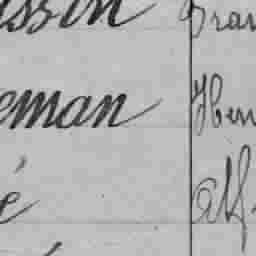 ssin Fran
eman Hen
é Alf